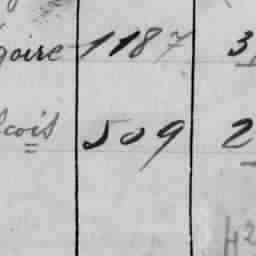 goire 1187 3
cois 509 2
42